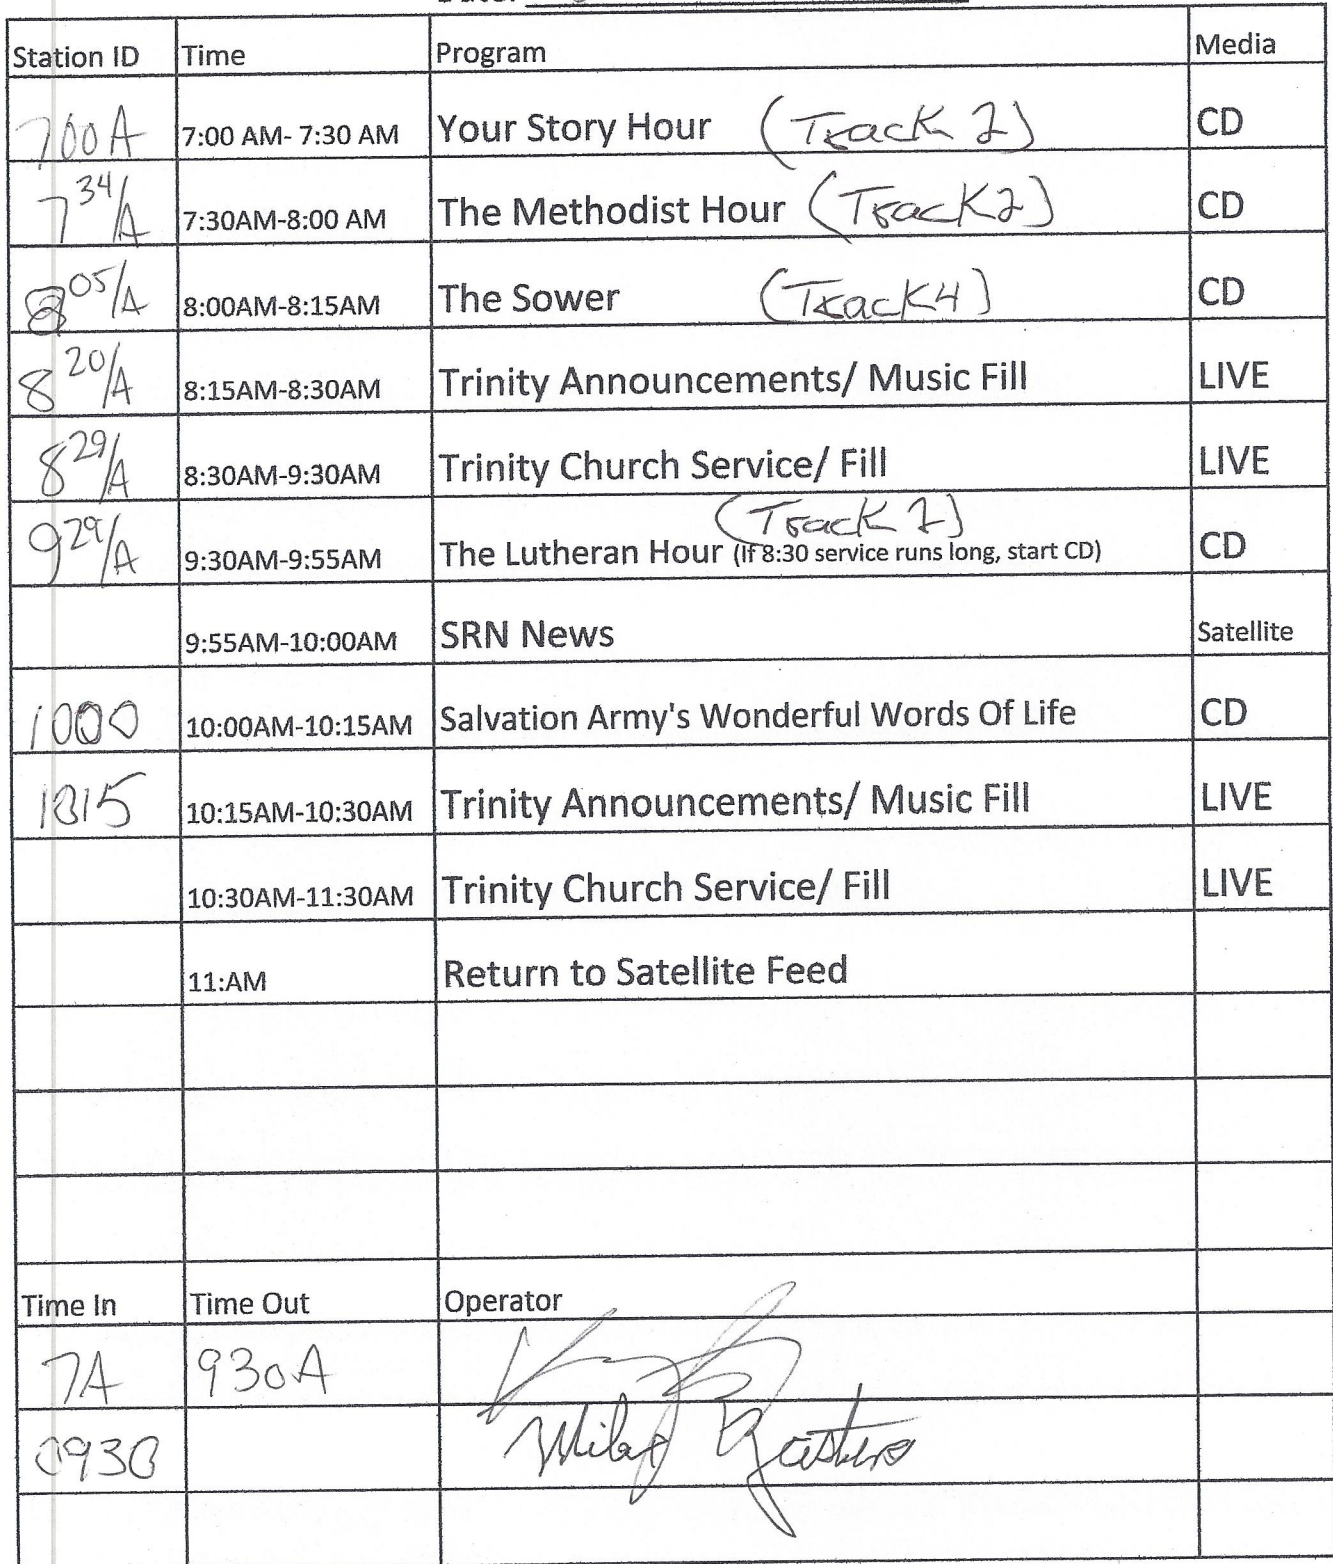 Station ID Time Program Media
700A 7:00 AM- 7:30 AM Your Story Hour (Track 2) CD
7 34/A 7:30AM-8:00 AM The Methodist Hour (Track 2) CD
8 05/A 8:00AM-8:15AM The Sower (Track 4) CD
8 20/A 8:15AM-8:30AM Trinity Announcements/ Music Fill LIVE
8 29/A 8:30AM-9:30AM Trinity Church Service/ Fill LIVE
(Track 1)
9 29/A 9:30AM-9:55AM The Lutheran Hour (If 8:30 service runs long, start CD) CD
9:55AM-10:00AM SRN News Satellite
1000 10:00AM-10:15AM Salvation Army's Wonderful Words Of Life CD
1015 10:15AM-10:30AM Trinity Announcements/ Music Fill LIVE
10:30AM-11:30AM Trinity Church Service/ Fill LIVE
11:AM Return to Satellite Feed
Time In Time Out Operator
7A 930A
0930